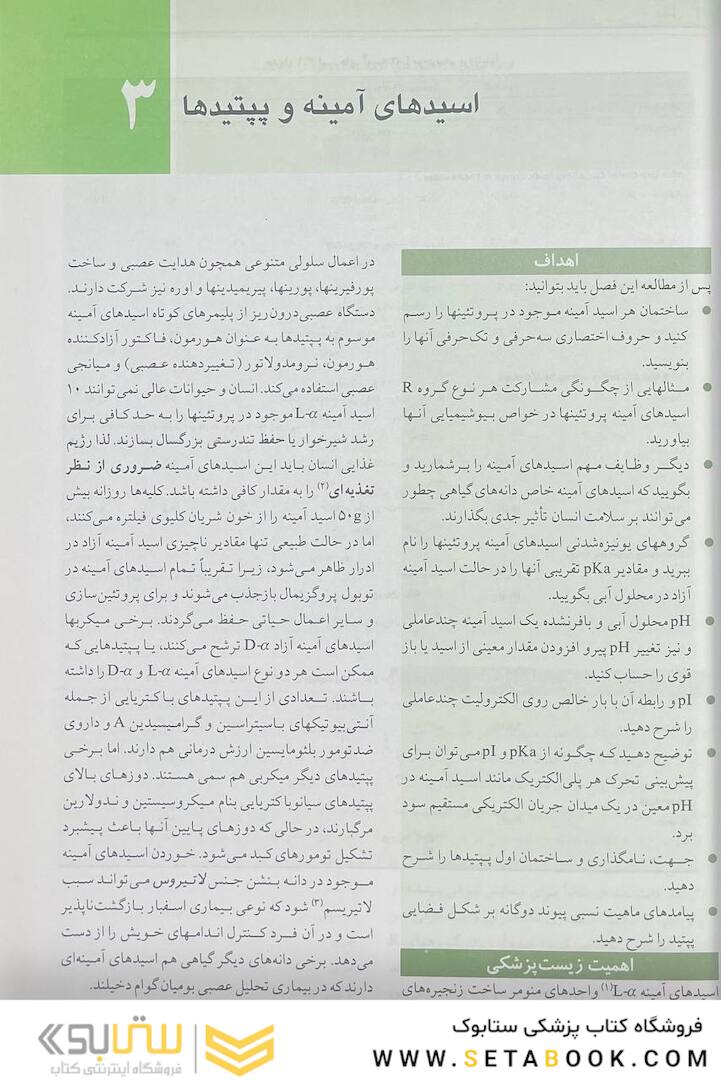 ۳
اسیدهای آمینه و پپتیدها
اهداف
پس از مطالعه این فصل باید بتوانید:
● ساختمان هر اسید آمینه موجود در پروتئینها را رسم
کنید و حروف اختصاری سه‌حرفی و تک‌حرفی آنها را
بنویسید.
● مثالهایی از چگونگی مشارکت هر نوع گروه R
اسیدهای آمینه پروتئینها در خواص بیوشیمیایی آنها
بیاورید.
● دیگر وظایف مهم اسیدهای آمینه را برشمارید و
بگویید که اسیدهای آمینه خاص دانه‌های گیاهی چطور
می‌توانند بر سلامت انسان تأثیر جدی بگذارند.
● گروههای یونیزه‌شدنی اسیدهای آمینه پروتئینها را نام
ببرید و مقادیر pKa تقریبی آنها را در حالت اسید آمینه
آزاد در محلول آبی بگویید.
● pH محلول آبی و بافرنشده یک اسید آمینه چندعاملی
و نیز تغییر pH پیرو افزودن مقدار معینی از اسید یا باز
قوی را حساب کنید.
● pI و رابطه آن با بار خالص روی الکترولیت چندعاملی
را شرح دهید.
● توضیح دهید که چگونه از pKa و pI می‌توان برای
پیش‌بینی تحرک هر پلی‌الکتریک مانند اسید آمینه در
pH معین در یک میدان جریان الکتریکی مستقیم سود
برد.
● جهت، نامگذاری و ساختمان اول پپتیدها را شرح
دهید.
● پیامدهای ماهیت نسبی پیوند دوگانه بر شکل فضایی
پپتید را شرح دهید.
اهمیت زیست‌پزشکی
اسیدهای آمینه L-α(۱) واحدهای منومر ساخت زنجیره‌های
در اعمال سلولی متنوعی همچون هدایت عصبی و ساخت
پورفیرینها، پورینها، پیریمیدینها و اوره نیز شرکت دارند.
دستگاه عصبی‌درون‌ریز از پلیمرهای کوتاه اسیدهای آمینه
موسوم به پپتیدها به عنوان هورمون، فاکتور آزادکننده
هورمون، نرومدولاتور (تغییردهنده عصبی) و میانجی
عصبی استفاده می‌کند. انسان و حیوانات عالی نمی‌توانند ۱۰
اسید آمینه L-α موجود در پروتئینها را به حد کافی برای
رشد شیرخوار یا حفظ تندرستی بزرگسال بسازند. لذا رژیم
غذایی انسان باید این اسیدهای آمینه ضروری از نظر
تغذیه‌ای(۲) را به مقدار کافی داشته باشد. کلیه‌ها روزانه بیش
از ۵۰g اسید آمینه را از خون شریان کلیوی فیلتره می‌کنند،
اما در حالت طبیعی تنها مقادیر ناچیزی اسید آمینه آزاد در
ادرار ظاهر می‌شود، زیرا تقریباً تمام اسیدهای آمینه در
توبول پروگزیمال بازجذب می‌شوند و برای پروتئین‌سازی
و سایر اعمال حیاتی حفظ می‌گردند. برخی میکربها
اسیدهای آمینه آزاد D-α ترشح می‌کنند، یا پپتیدهایی که
ممکن است هر دو نوع اسیدهای آمینه L-α و D-α را داشته
باشند. تعدادی از این پپتیدهای باکتریایی از جمله
آنتی‌بیوتیکهای باسیتراسین و گرامیسیدین A و داروی
ضدتومور بلئومایسین ارزش درمانی هم دارند. اما برخی
پپتیدهای دیگر میکربی هم سمی هستند. دوزهای بالای
پپتیدهای سیانوباکتریایی بنام میکروسیستین و ندولارین
مرگبارند، در حالی که دوزهای پایین آنها باعث پیشبرد
تشکیل تومورهای کبد می‌شود. خوردن اسیدهای آمینه
موجود در دانه بنشن جنس لاتیروس می‌تواند سبب
لاتیریسم(۳) شود که نوعی بیماری اسفبار بازگشت‌ناپذیر
است و در آن فرد کنترل اندامهای خویش را از دست
می‌دهد. برخی دانه‌های دیگر گیاهی هم اسیدهای آمینه‌ای
دارند که در بیماری تحلیل عصبی بومیان گوام دخیلند.
فروشگاه کتاب پزشکی ستابوک
WWW.SETABOOK.COM
ستابوک
فروشگاه اینترنتی کتاب